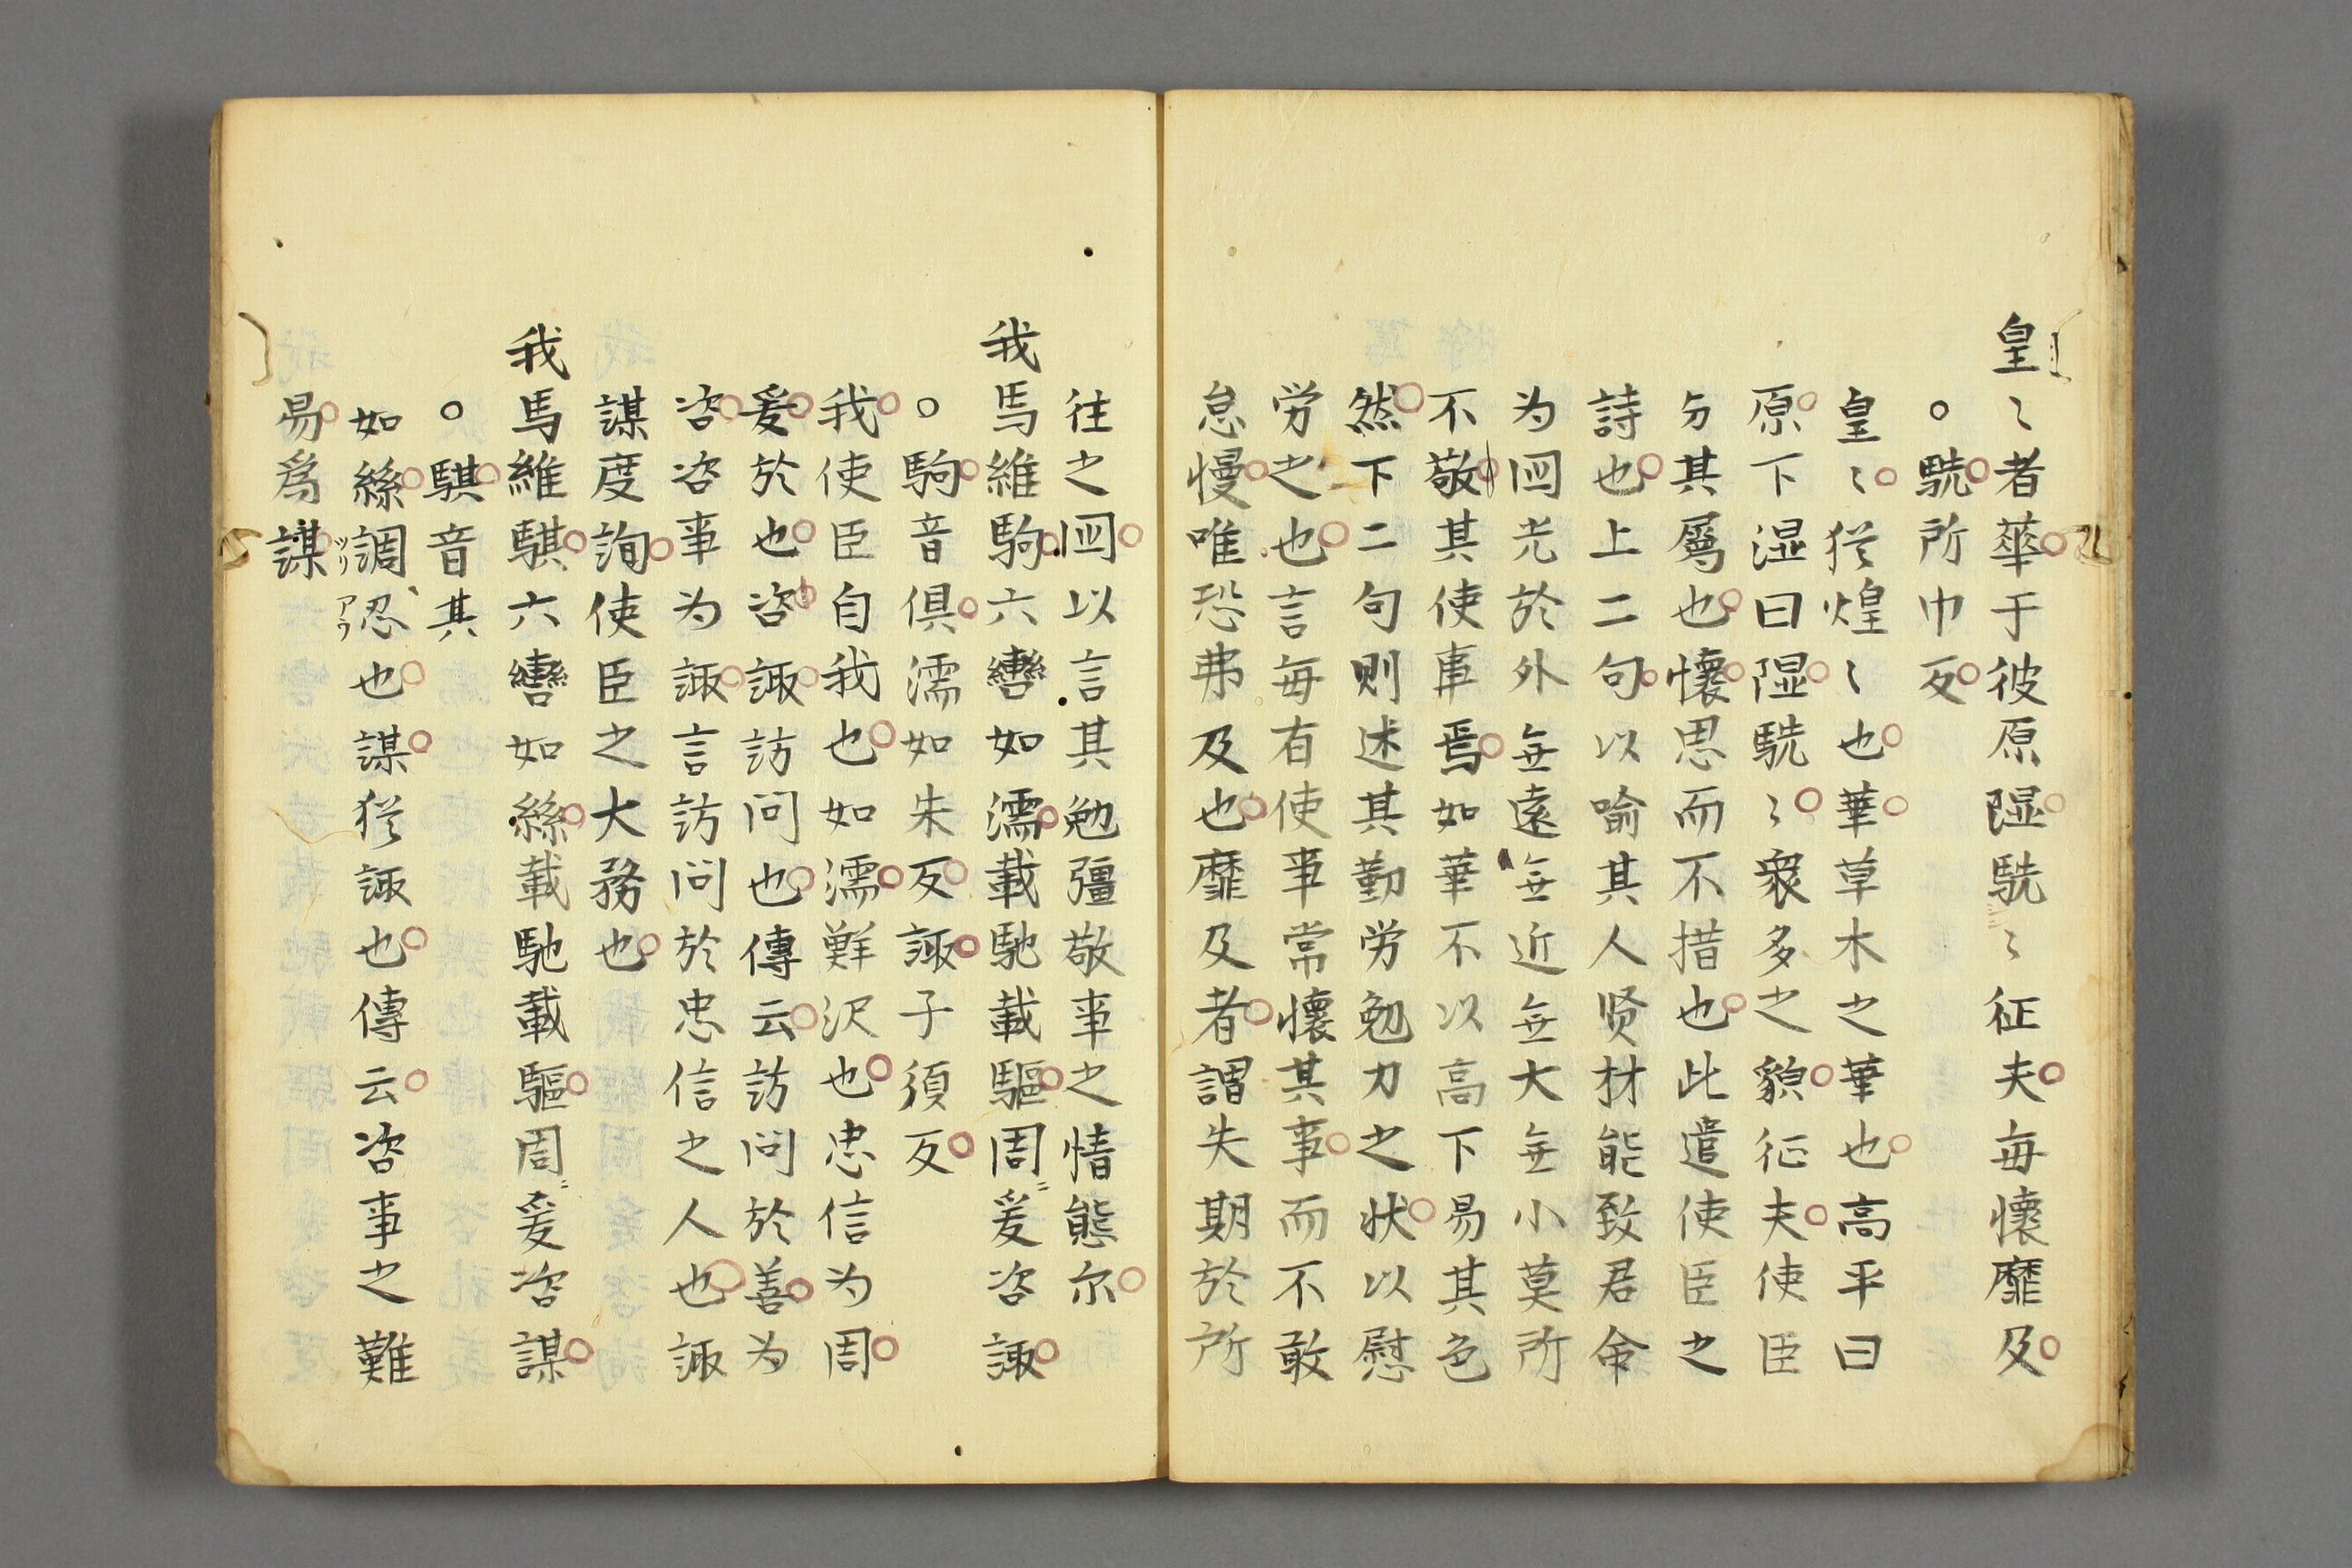 皇〻者華于彼原隰駪〻征夫毎懐靡及
○駪所巾反
皇〻猶煌〻也華草木之華也高平曰
原下湿曰隰駪〻衆多之貌征夫使臣
与其属也懐思而不措也此遣使臣之
詩也上二句以喻其人贤材能致君命
为国光於外無遠無近無大無小莫所
不敬其使事焉如華不以高下易其色
然下二句则述其勤労勉力之状以慰
労之也言毎有使事常懐其事而不敢
怠慢唯恐弗及也靡及者謂失期於所
往之国以言其勉彊敬事之情態尓
我馬維駒六轡如濡載馳載驅周爰咨諏
○駒音俱濡如朱反諏子須反
我使臣自我也如濡鮮沢也忠信为周
爰於也咨諏訪问也傳云訪问於善为
咨咨事为諏言訪问於忠信之人也諏
謀度詢使臣之大務也
我馬維騏六轡如絲載馳載驅周爰咨謀
○騏音其
如絲調忍也謀猶諏也傳云咨事之難
ツリ アワ
易爲謀